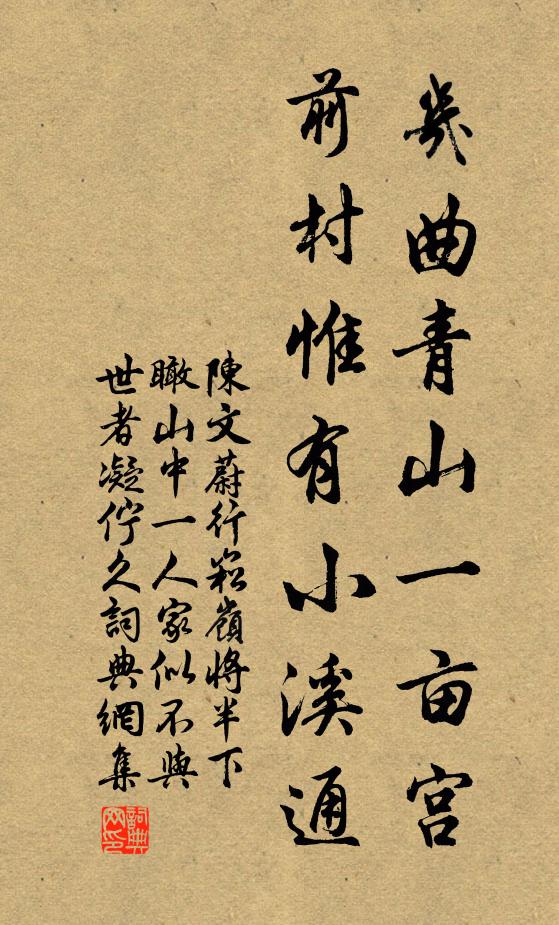 幾曲青山一亩宫
前村惟有小溪通
陳文蔚行崧嶺將半下
瞰山中一人家似不與
世者凝佇久詞典網集
詞典网印